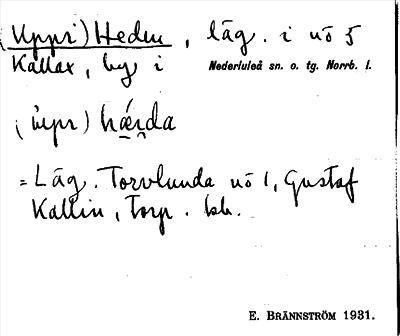 (Uppi) Heden, läg. i nö 5
Kallax, by i Nederluleå sn. o. tg. Norrb. l.
(ı̇̀pr) hǽn̥da
= Läg. Torvlunda nö 1, Gustaf
Kallin, Torp. lht.
E. BRÄNNSTRÖM 1931.